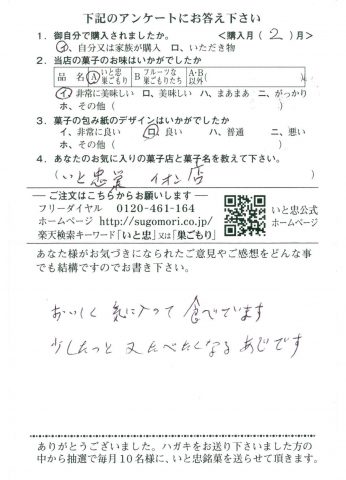 下記のアンケートにお答え下さい
1. 御自分で購入されましたか。 <購入月( 2 )月>
イ、自分又は家族が購入 ロ、いただき物
2. 当店の菓子のお味はいかがでしたか
品 名 A いと忠 巣ごもり B フルーツな 巣ごもりたち A・B 以外
イ、非常に美味しい ロ、美味しい ハ、まあまあ ニ、がっかり
ホ、その他( )
3. 菓子の包み紙のデザインはいかがでしたか
イ、非常に良い ロ、良い ハ、普通 ニ、悪い
ホ、その他( )
4. あなたのお気に入りの菓子店と菓子名を教えて下さい。
( いと忠 イオン店 )
―ご注文はこちらからお願いします―
フリーダイヤル 0120-461-164
ホームページ http://sugomori.co.jp/
楽天検索キーワード「いと忠」又は「巣ごもり」
いと忠公式
ホームページ
あなた様がお気づきになられたご意見やご感想をどんな事
でも結構ですのでお書き下さい。
おいしく 気に入って 食べでます
少したつと 又たべたくなる あじです
ありがとうございました。ハガキをお送り下さいました方の
中から抽選で毎月10名様に、いと忠銘菓を送らせて頂きます。